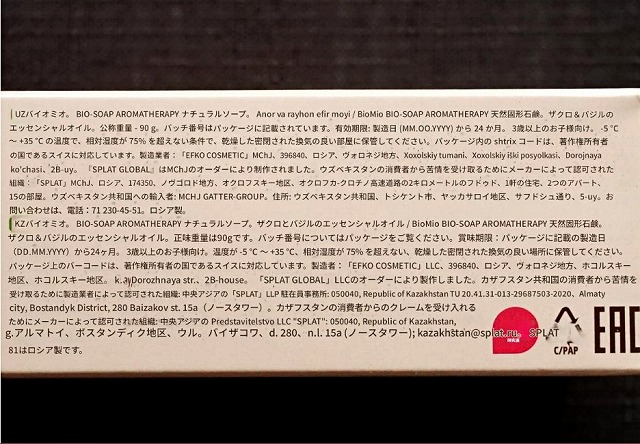 UZバイオミオ。 BIO-SOAP AROMATHERAPY ナチュラルソープ。 Anor va rayhon efir moyi / BioMio BIO-SOAP AROMATHERAPY 天然固形石鹸。ザクロ＆バジルの
エッセンシャルオイル。公称重量 - 90 g。バッチ番号はパッケージに記載されています。有効期限: 製造日 (MM.OO.YYYY) から 24 か月。 3歳以上のお子様向け。 -5 °C
～ +35 °C の温度で、相対湿度が 75% を超えない条件で、乾燥した密閉された換気の良い部屋に保管してください。パッケージ内の shtrix コードは、著作権所有者
の国であるスイスに対応しています。製造業者：「EFKO COSMETIC」MChJ、396840、ロシア、ヴォロネジ地方、 Xoxolskiy tumani、Xoxolskiy iski posyolkasi、Dorojnaya
ko'chasi、2B-uy。 『SPLAT GLOBAL』はMChJのオーダーにより制作されました。ウズベキスタンの消費者から苦情を受け取るためにメーカーによって認可された
組織：「SPLAT」MChJ、ロシア、174350、ノヴゴロド地方、オクロフスキー地区、オクロフカ-クロチノ高速道路の2キロメートルのフドゥド、1軒の住宅、2つのアパート、
15の部屋。ウズベキスタン共和国への輸入者: MCHJ GATTER-GROUP。住所: ウズベキスタン共和国、トシケント市、ヤッカサロイ地区、サフドシュ通り、5-uy。お
問い合わせは、電話：71 230-45-51。ロシア製。
KZバイオミオ。 BIO-SOAP AROMATHERAPY ナチュラルソープ。ザクロとバジルのエッセンシャルオイル / BioMio BIO-SOAP AROMATHERAPY 天然固形石鹸。
ザクロ＆バジルのエッセンシャルオイル。正味重量は90gです。バッチ番号についてはパッケージをご覧ください。賞味期限：パッケージに記載の製造日
（DD.MM.YYYY）から24ヶ月。 3歳以上のお子様向け。温度が -5 °C ～ +35 °C、相対湿度が 75% を超えない、乾燥した密閉された換気の良い場所に保管してください。
パッケージ上のバーコードは、著作権所有者の国であるスイスに対応しています。製造者：「EFKO COSMETIC」LLC、396840、ロシア、ヴォロネジ地方、ホコルスキー
地区、ホコルスキー地区。 k.ayDorozhnaya str.、2B-house。 「SPLAT GLOBAL」LLCのオーダーにより製作しました。カザフスタン共和国の消費者から苦情を
受け取るために製造業者によって認可された組織: 中央アジアの「SPLAT」LLP 駐在員事務所: 050040, Republic of Kazakhstan TU 20.41.31-013-29687503-2020、Almaty
city, Bostandyk District, 280 Baizakov st. 15a（ノースタワー）。カザフスタンの消費者からのクレームを受け入れる
ためにメーカーによって認可された組織: 中央アジアの Predstavitelstvo LLC "SPLAT": 050040, Republic of Kazakhstan,
g.アルマトイ、ボスタンディク地区、ウル。バイザコワ、d. 280、n.l. 15a (ノースタワー); kazakhstan@splat.ru。 SPLAT
81はロシア製です。
C/PAP
EAC